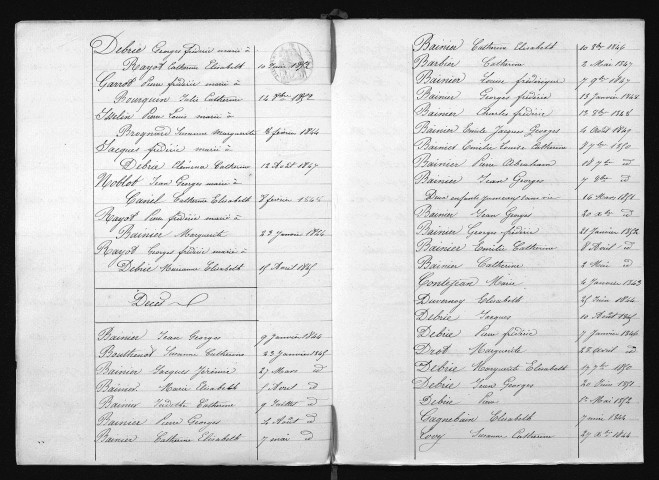 Debrie Georges frédéric marié à
Rayot Catherine Elisabeth 10 Juin 1852
Garrot Pierre frédéric marié à
Bourquin Julie Catherine 14 8bre 1852
Iselin Pierre Louis marié à
Brognard Suzanne Marguerite 8 février 1844
Jacques frédéric marié à
Debrie Clémence Catherine 12 Août 1847
Noblot Jean Georges marié à
Canel Catherine Elisabeth 8 février
Rayot Pierre frédéric marié à
Bainier Marguerite 23 Janvier 1844
Rayot Georges frédéric marié à
Debrie Marianne Elisabeth 15 Avril 1845
Décès
Bainier Jean Georges 9 Janvier 1844
Bouthenot Suzanne Catherine 23 Janvier 1845
Bainier Jacques Jérémie 27 Mars id
Bainier Marie Elisabeth Avril id
Bainier Judith Catherine 9 Juillet id
Bainier Pierre Georges 4 Août id
Bainier Catherine Elisabeth 7 mai id
Bainier Catherine Elisabeth 10 8bre 1846
Barbier Catherine 2 Mai 1847
Bainier Louise frédérique 7 9bre 1847
Bainier Georges frédéric 13 Janvier 1848
Bainier Charles frédéric 13 8bre 1848
Bainier Emile Jacques Georges 4 Août 1849
Bainier Emilie Louise Catherine 8 7bre 1850
Bainier Pierre Abraham 18 7bre id
Bainier Jean Georges 7 8bre id
Deux enfants jumeaux sans vie 14 Mars 1851
Bainier Jean Georges 20 Xbre id
Bainier Georges frédéric 21 Janvier 1852
Bainier Emilie Catherine 8 Avril id
Bainier Catherine 2 Mai id
Contejean Marie 4 Janvier 1843
Duvernoy Elisabeth 25 Juin 1844
Debrie Jacques 10 Août 1845
Debrie Pierre frédéric 7 Janvier 1846
Drot Marguerite 22 Avril id
Debrie Marguerite Elisabeth 17 7bre 1850
Debrie Jean Georges 20 Juin 1851
Debrie Pierre 1er Mai 1852
Gagnebain Elisabeth 7 mai 1844
Lovy Suzanne Catherine 27 Xbre 1844